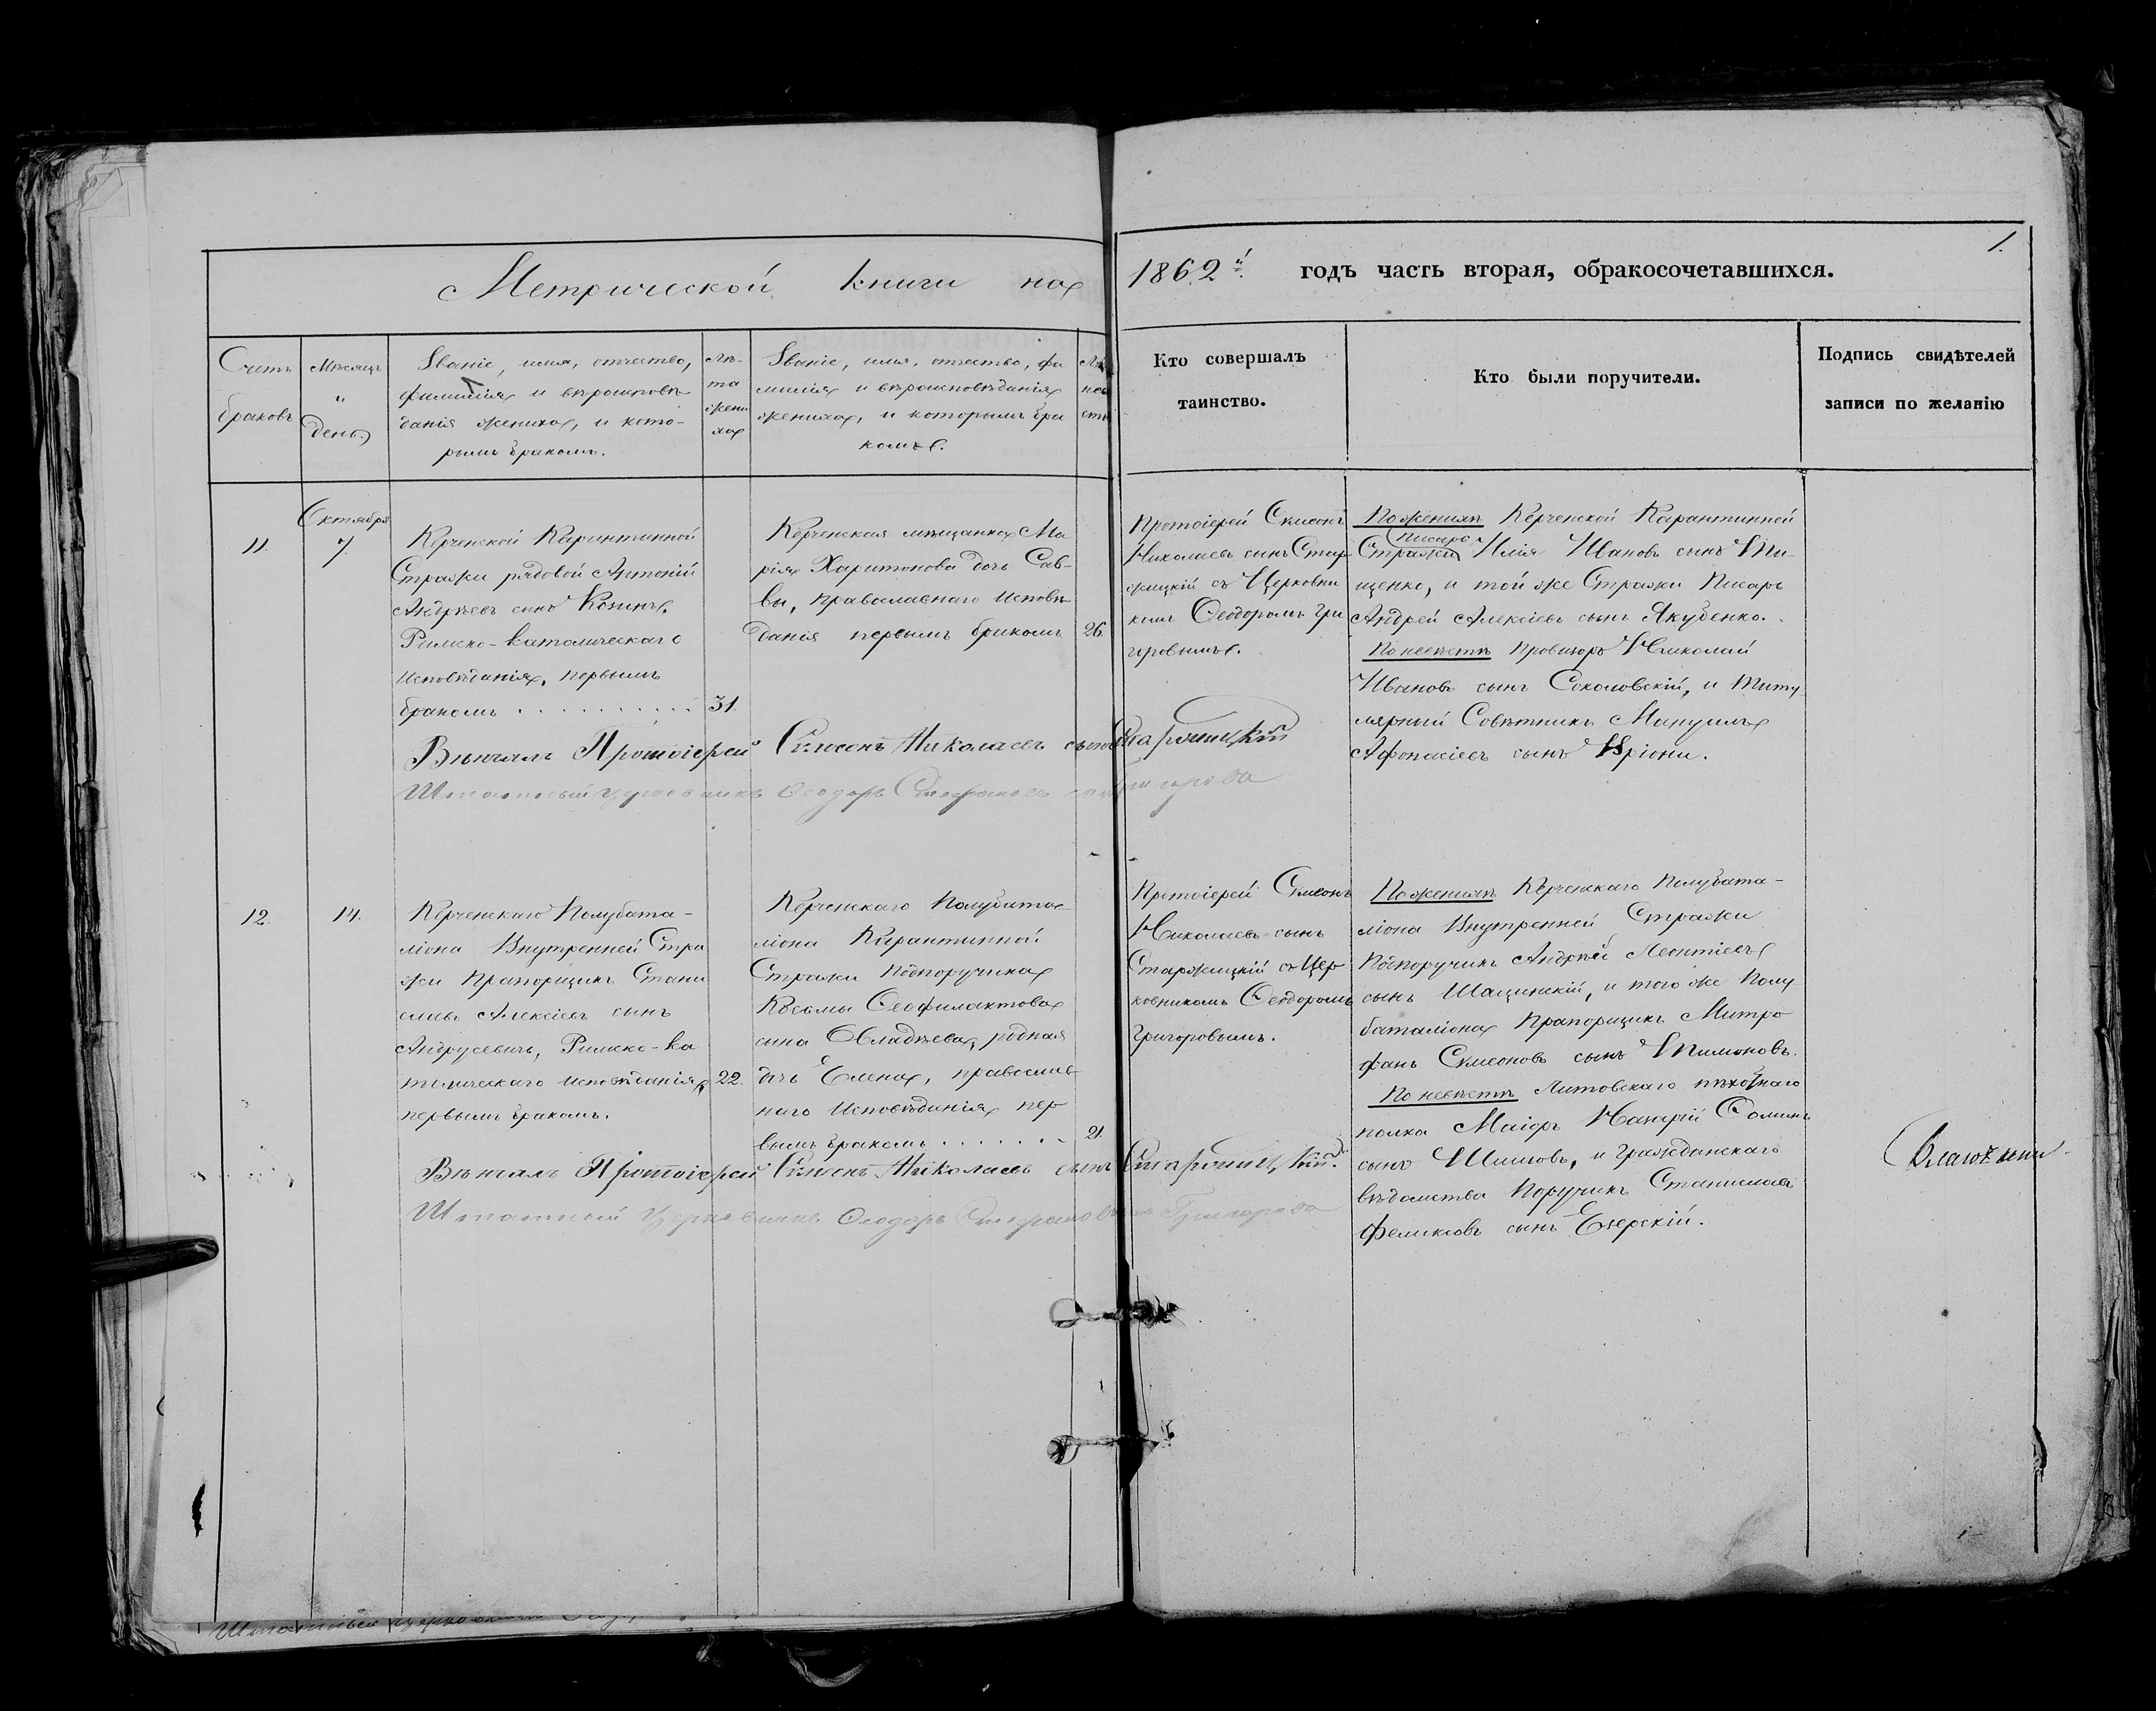 Метрической книги на
1862й годъ часть вторая, обракосочетавшихся.
1.
Счетъ
браковъ
Мѣсяцъ
и
день
Званіе, имя, отчество,
фамилія и вѣроисповѣ-
данія жениха, и кото-
рымъ бракомъ.
Лѣ-
та
жени
ха
Званіе, имя, отчество, фа
милія и вѣроисповѣданія
жениха, и которымъ бра
комъ.
Кто совершалъ
таинство.
Кто были поручители.
Подпись свидѣтелей
записи по желанію
11.
Октября
7.
Керченской Карантинной
Стражи рядовой Антоній
Андреевъ сынъ
Римско-католическаго
исповѣданія, первымъ
бракомъ . . . . . . . . . .
31.
Керченская мѣщанка Ма
рія Харитонова дочь Сав-
вы, православнаго исповѣ
данія первымъ бракомъ
26.
Протоіерей Симеонъ
Николаевъ сынъ Стар
жицкій съ Церковни
комъ Ѳеодоромъ Гри
горовымъ.
По женихѣ Керченской Карантинной
Писарь
Стражи Илія Ивановъ сынъ Ти-
щенко, и той же Стражи Писарь
Андрей Алексіевъ сынъ Якубенко.
По невѣстѣ Провизоръ Николай
Ивановъ сынъ Соколовскій, и Титу
лярный Совѣтникъ Мануилъ
Афонасіевъ сынъ Кріони.
Вѣнчалъ Протоіерей Симеонъ Николаевъ сынъ Старжицкій
Штатный церковникъ Ѳеодоръ Григорова
12.
14.
Керченскаго Полубата-
ліона Внутренней Стра
жи Прапорщикъ Стани
славъ Алексіевъ сынъ
Андрусевичъ, Римско-ка
толическаго исповѣданія,
первымъ бракомъ.
22.
Керченскаго Полубата
ліона Карантинной
Стражи Подпоручика
Козьмы Ѳеофилактова
сина родная
дочь Елена, православ
наго Исповѣданія пер
вымъ бракомъ . . . . . . .
21.
Протоіерей Симеонъ
Николаевъ сынъ
Старжицкій съ Цер
ковникомъ Ѳеодоромъ
Григоровымъ.
По женихѣ Керченскаго Полубата-
ліона Внутренней Стражи
Подпоручикъ Андрей Леонтіевъ
сынъ Шацинскій, и того же Полу
баталіона Прапорщикъ Митро
фанъ Симеоновъ сынъ Тимоновъ.
По невѣстѣ Литовскаго пѣхотнаго
полка Маіоръ
сынъ Шишовъ, и Гражданскаго
вѣдомства Поручикъ Станиславъ
Феликсовъ сынъ Езерскій.
Вѣнчалъ Протоіерей Симеонъ Николаевъ сынъ Старжицкій.
Штатный Церковникъ Ѳеодоръ Григорова